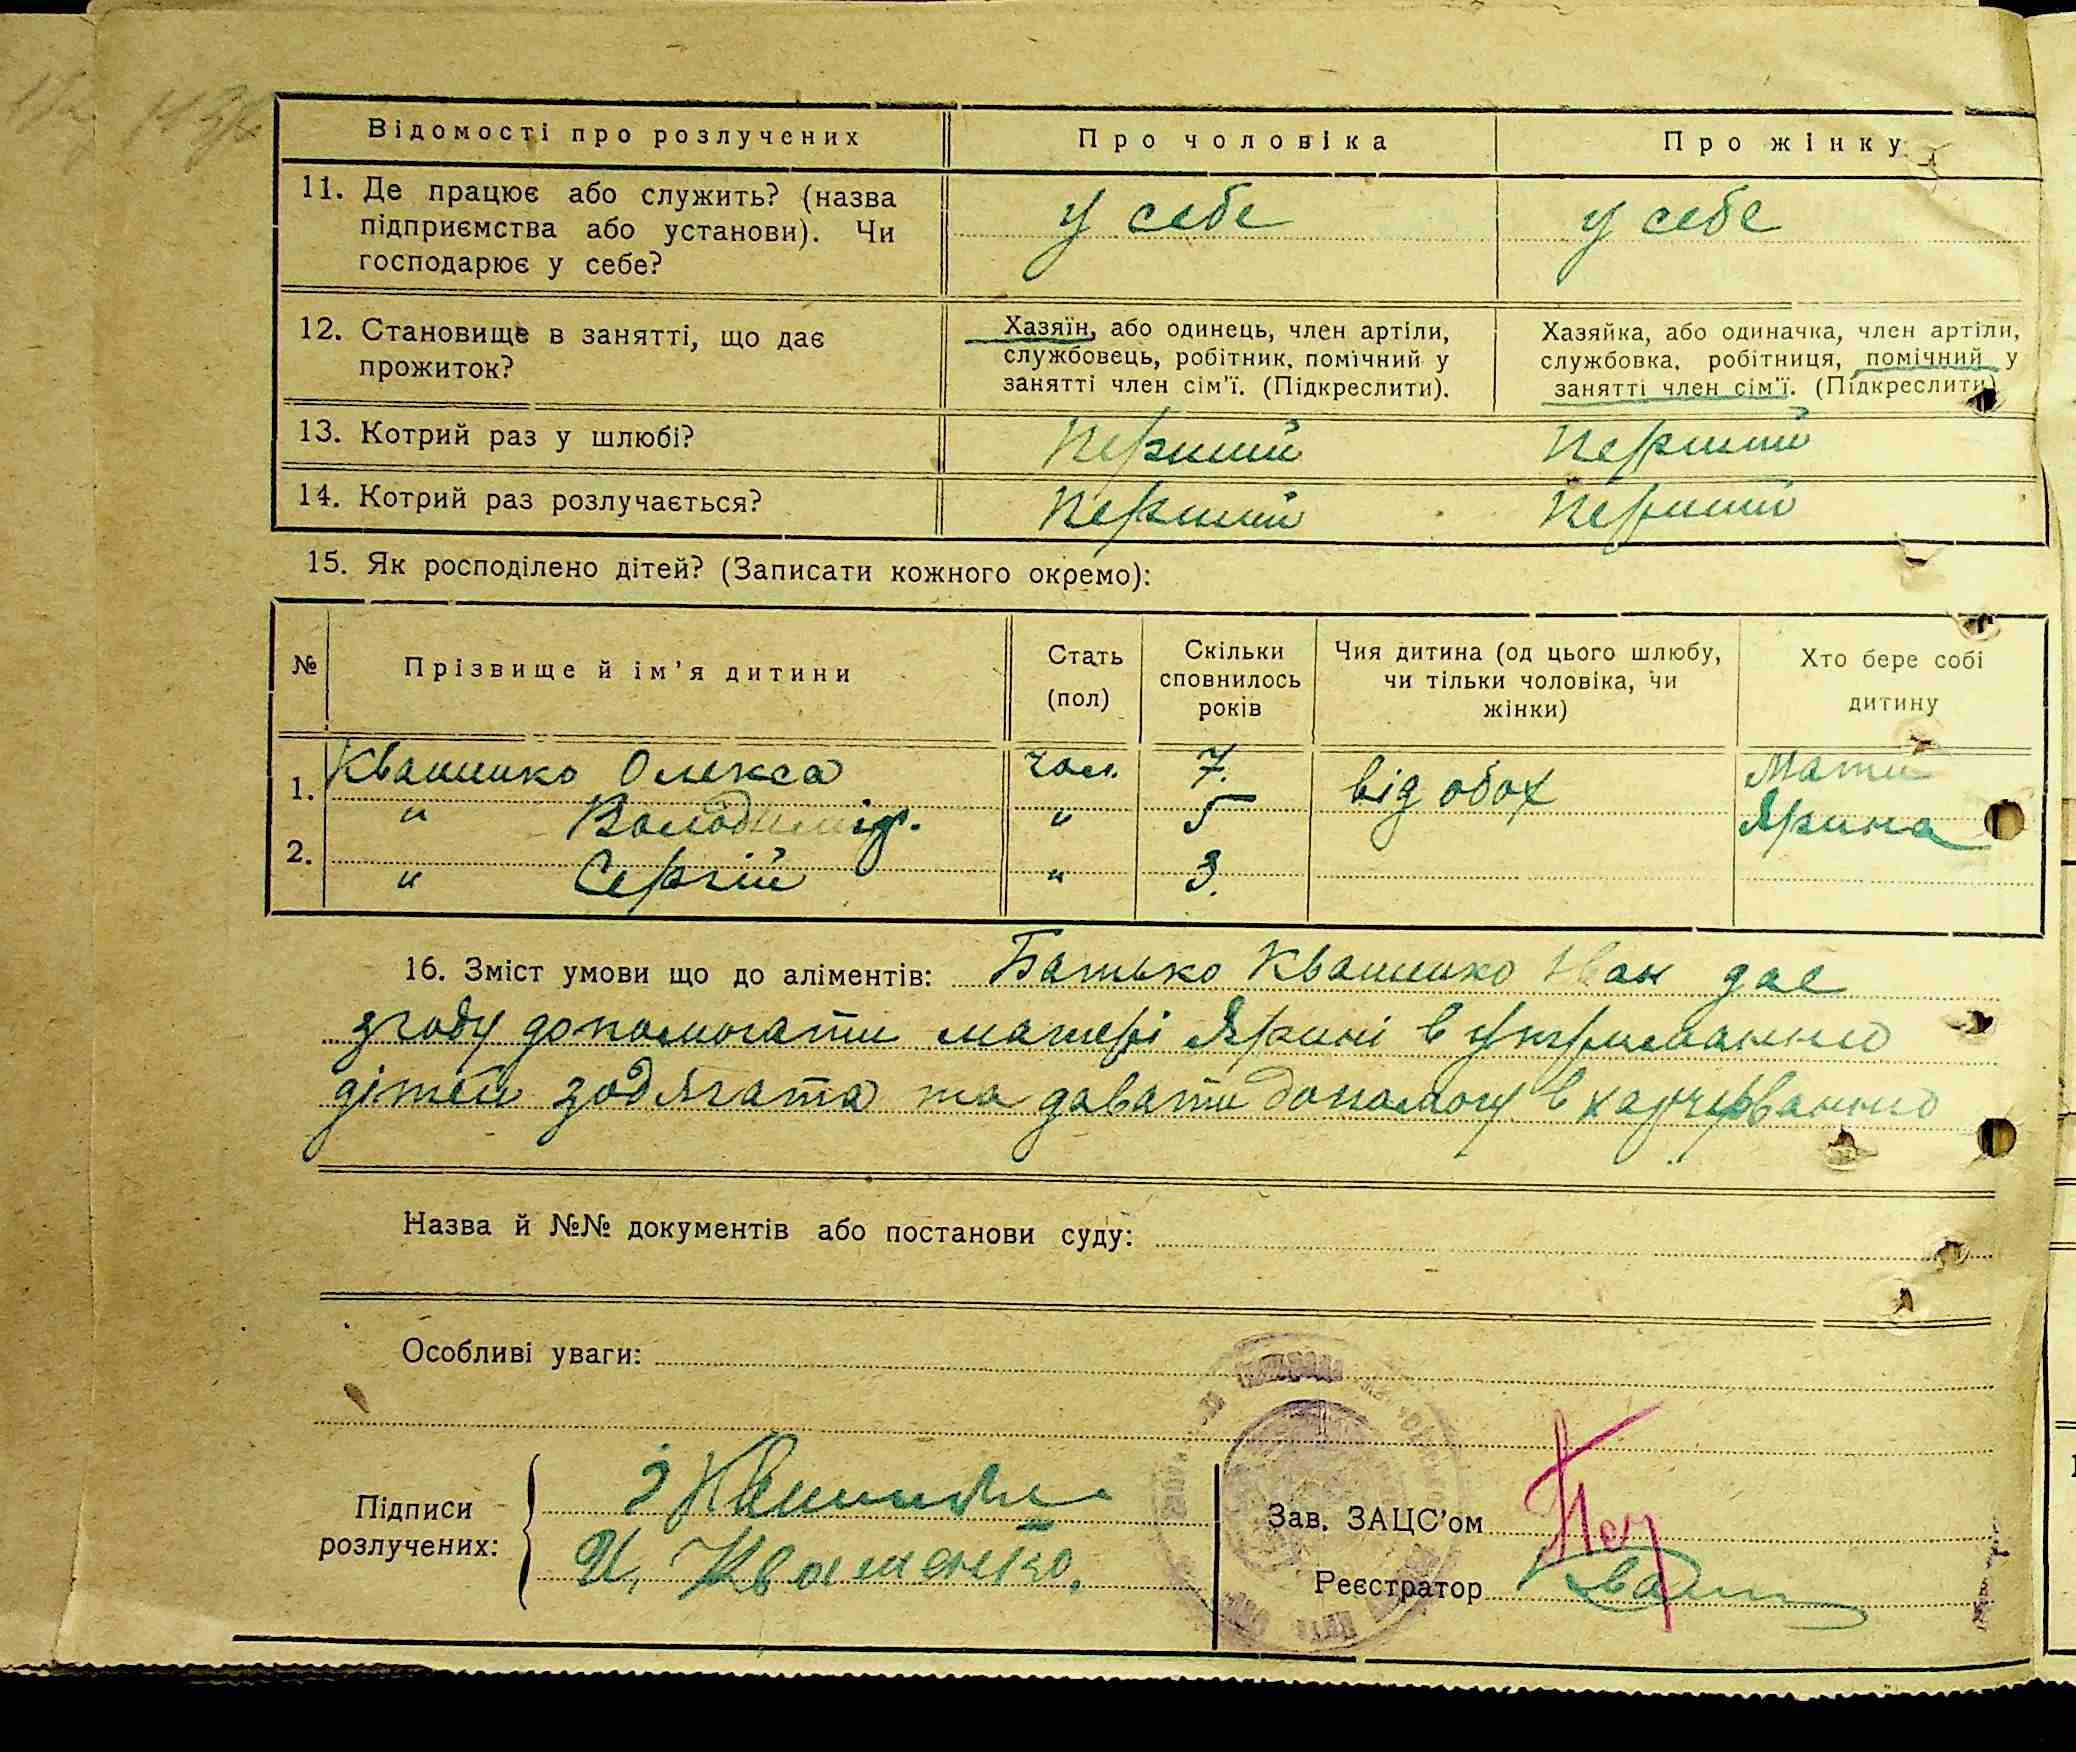 Відомості про розлучених Про чоловіка Про жінку
11. Де працює або служить? (назва
підприємства або установи). Чи
господарює у себе?
у себе у себе
12. Становище в занятті, що дає
прожиток?
Хазяїн, або одинець, член артіли,
службовець, робітник, помічний у
занятті член сім'ї. (Підкреслити).
Хазяйка, або одиначка, член артіли,
службовка, робітниця, помічний у
занятті член сім'ї. (Підкреслити)
13. Котрий раз у шлюбі? Перший Перший
14. Котрий раз розлучається? Перший Перший
15. Як росподілено дітей? (Записати кожного окремо):
№ Прізвище й ім'я дитини
Стать
(пол)
Скільки
сповнилось
років
Чия дитина (од цього шлюбу,
чи тільки чоловіка, чи
жінки)
Хто бере собі
дитину
1. Квашико Олекса чол. 7. від обох Мати
" Володимір. " 5 Ярина
2.
" Сергій " 3.
16. Зміст умови що до аліментів: Батько Квашико Іван дає
згоду допомогати матері Ярині в утриманню
дітей зодягата та давати допомогу в харчуванню
Назва й №№ документів або постанови суду:
Особливі уваги:
Підписи
розлучених:
И. Квашенко.
Зав. ЗАЦС'ом
Реєстратор